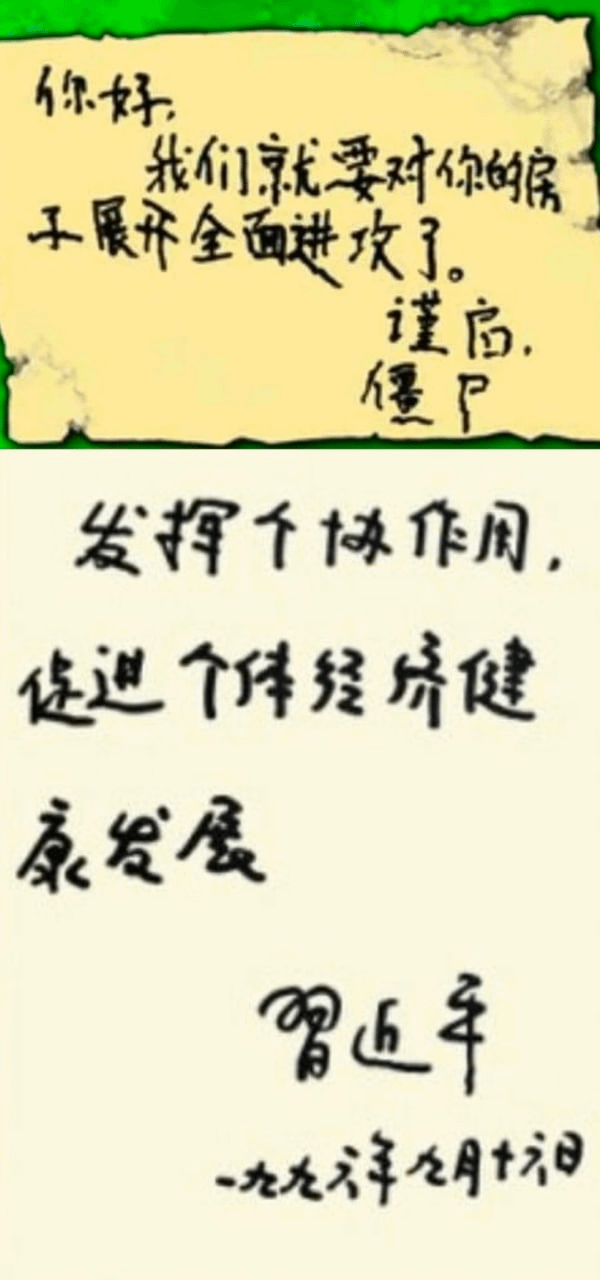 你好,
我们就要对你的房
子展开全面进攻了。
谨启,
僵尸
发挥个协作用,
促进个体经济健
康发展
習近平
一九九六年九月十六日